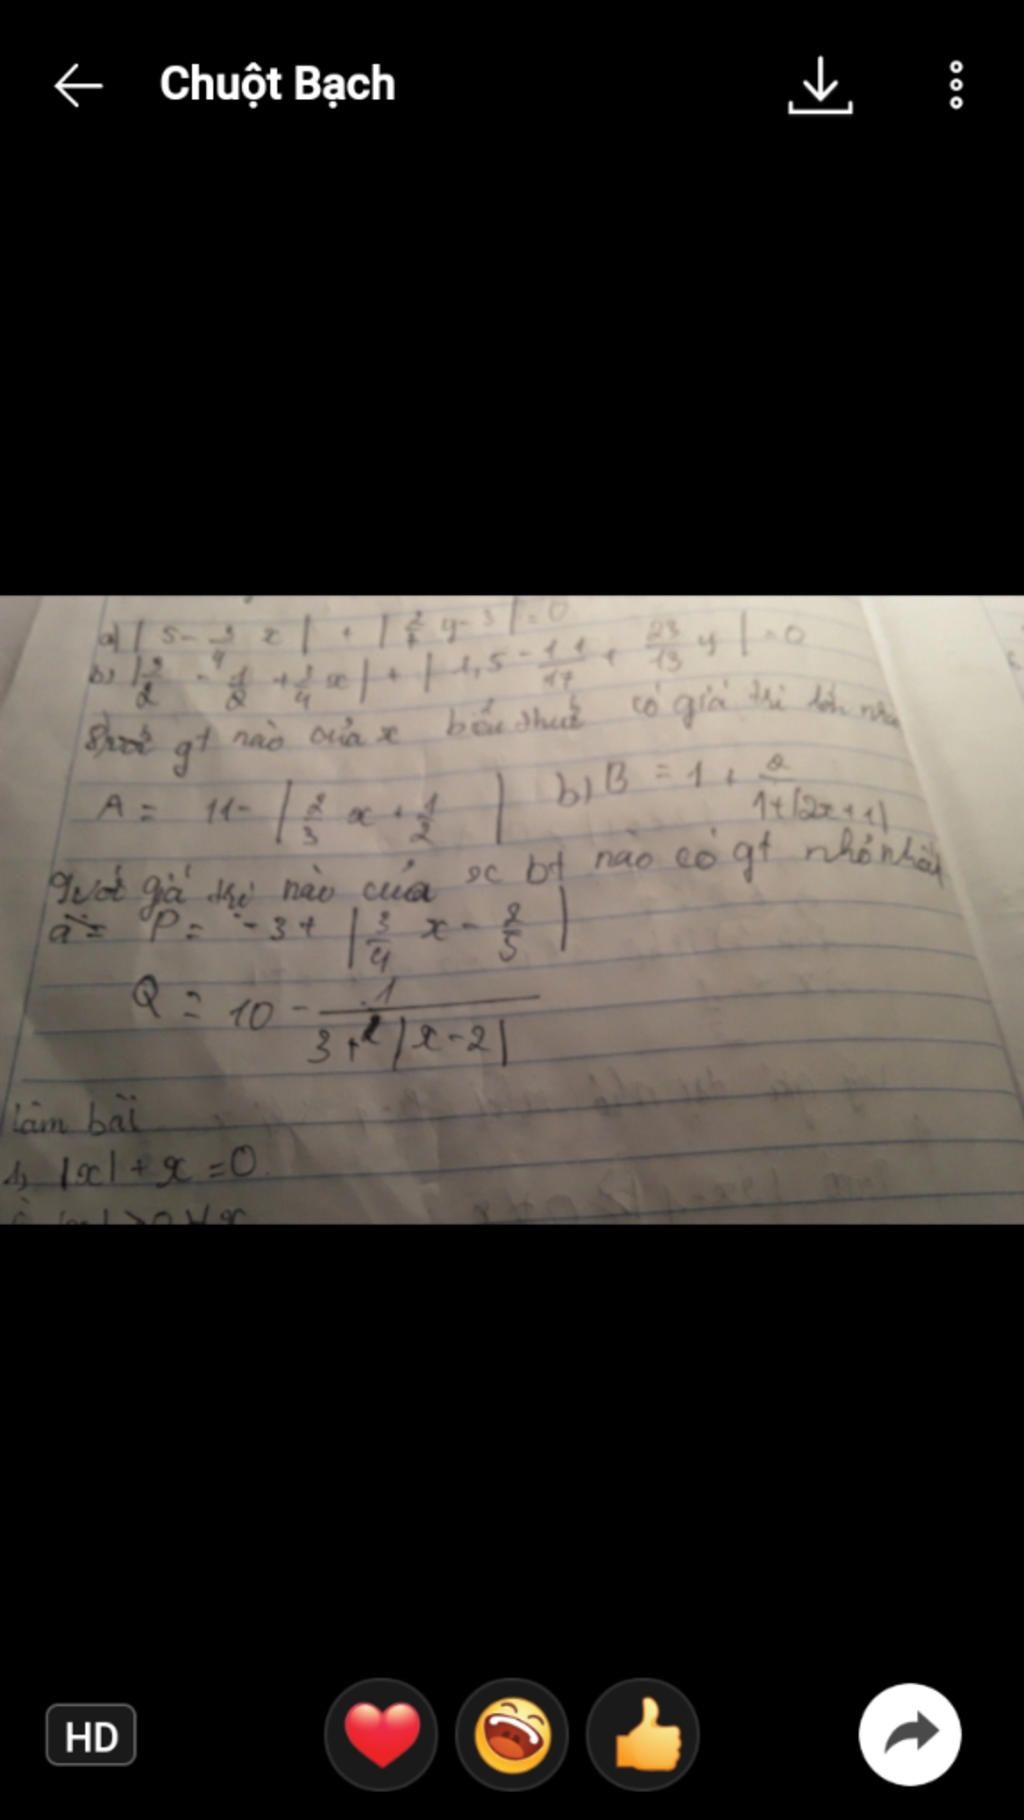 Chuột Bạch
a) | 5 - 3/4 x | + | 2/7 y - 3 | = 0
b) | 3/2 - 1/2 + 3/4 x | + | 1,5 - 11/17 + 23/13 y | = 0
gt nào của x biểu thức có giá trị lớn
A = 11 - | 2/3 x + 1/2 | b) B = 1 + 2/(1+|2x+1|)
giá trị nào của x bt nào có gt nhỏ nhất
a = P = -3 + | 3/4 x - 2/5 |
Q = 10 - 1/(3+2|x-2|)
làm bài
|x| + x = 0
HD